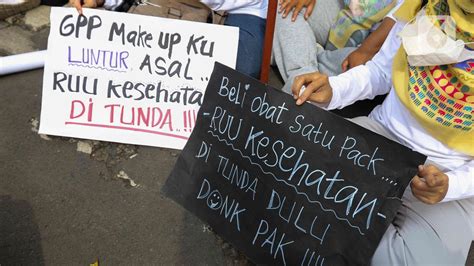 GPP Make up KU
LUNTUR ASAL..
RUU KESEHATAN
DI TUNDA..!!!
Beli obat Satu Pack....
-RUU KESEHATAN-
DI TUNDA DULU
DONK PAK !!!